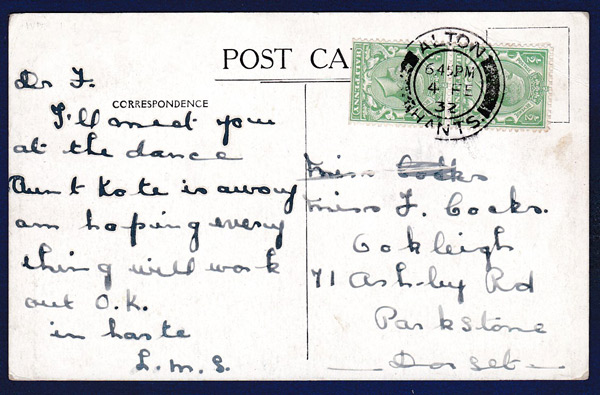 POST CA
CORRESPONDENCE
Dr F.
I'll meet you
at the dance
Aunt Kate is away
am hoping every
thing will work
out O.K.
in haste
L.M.S.
ALTON
6.45PM
4 FE
32
HANTS
HALFPENNY
½
D
Miss Cocks
Miss F. Cocks.
Oakleigh
71 Ashley Rd
Parkstone
Dorset